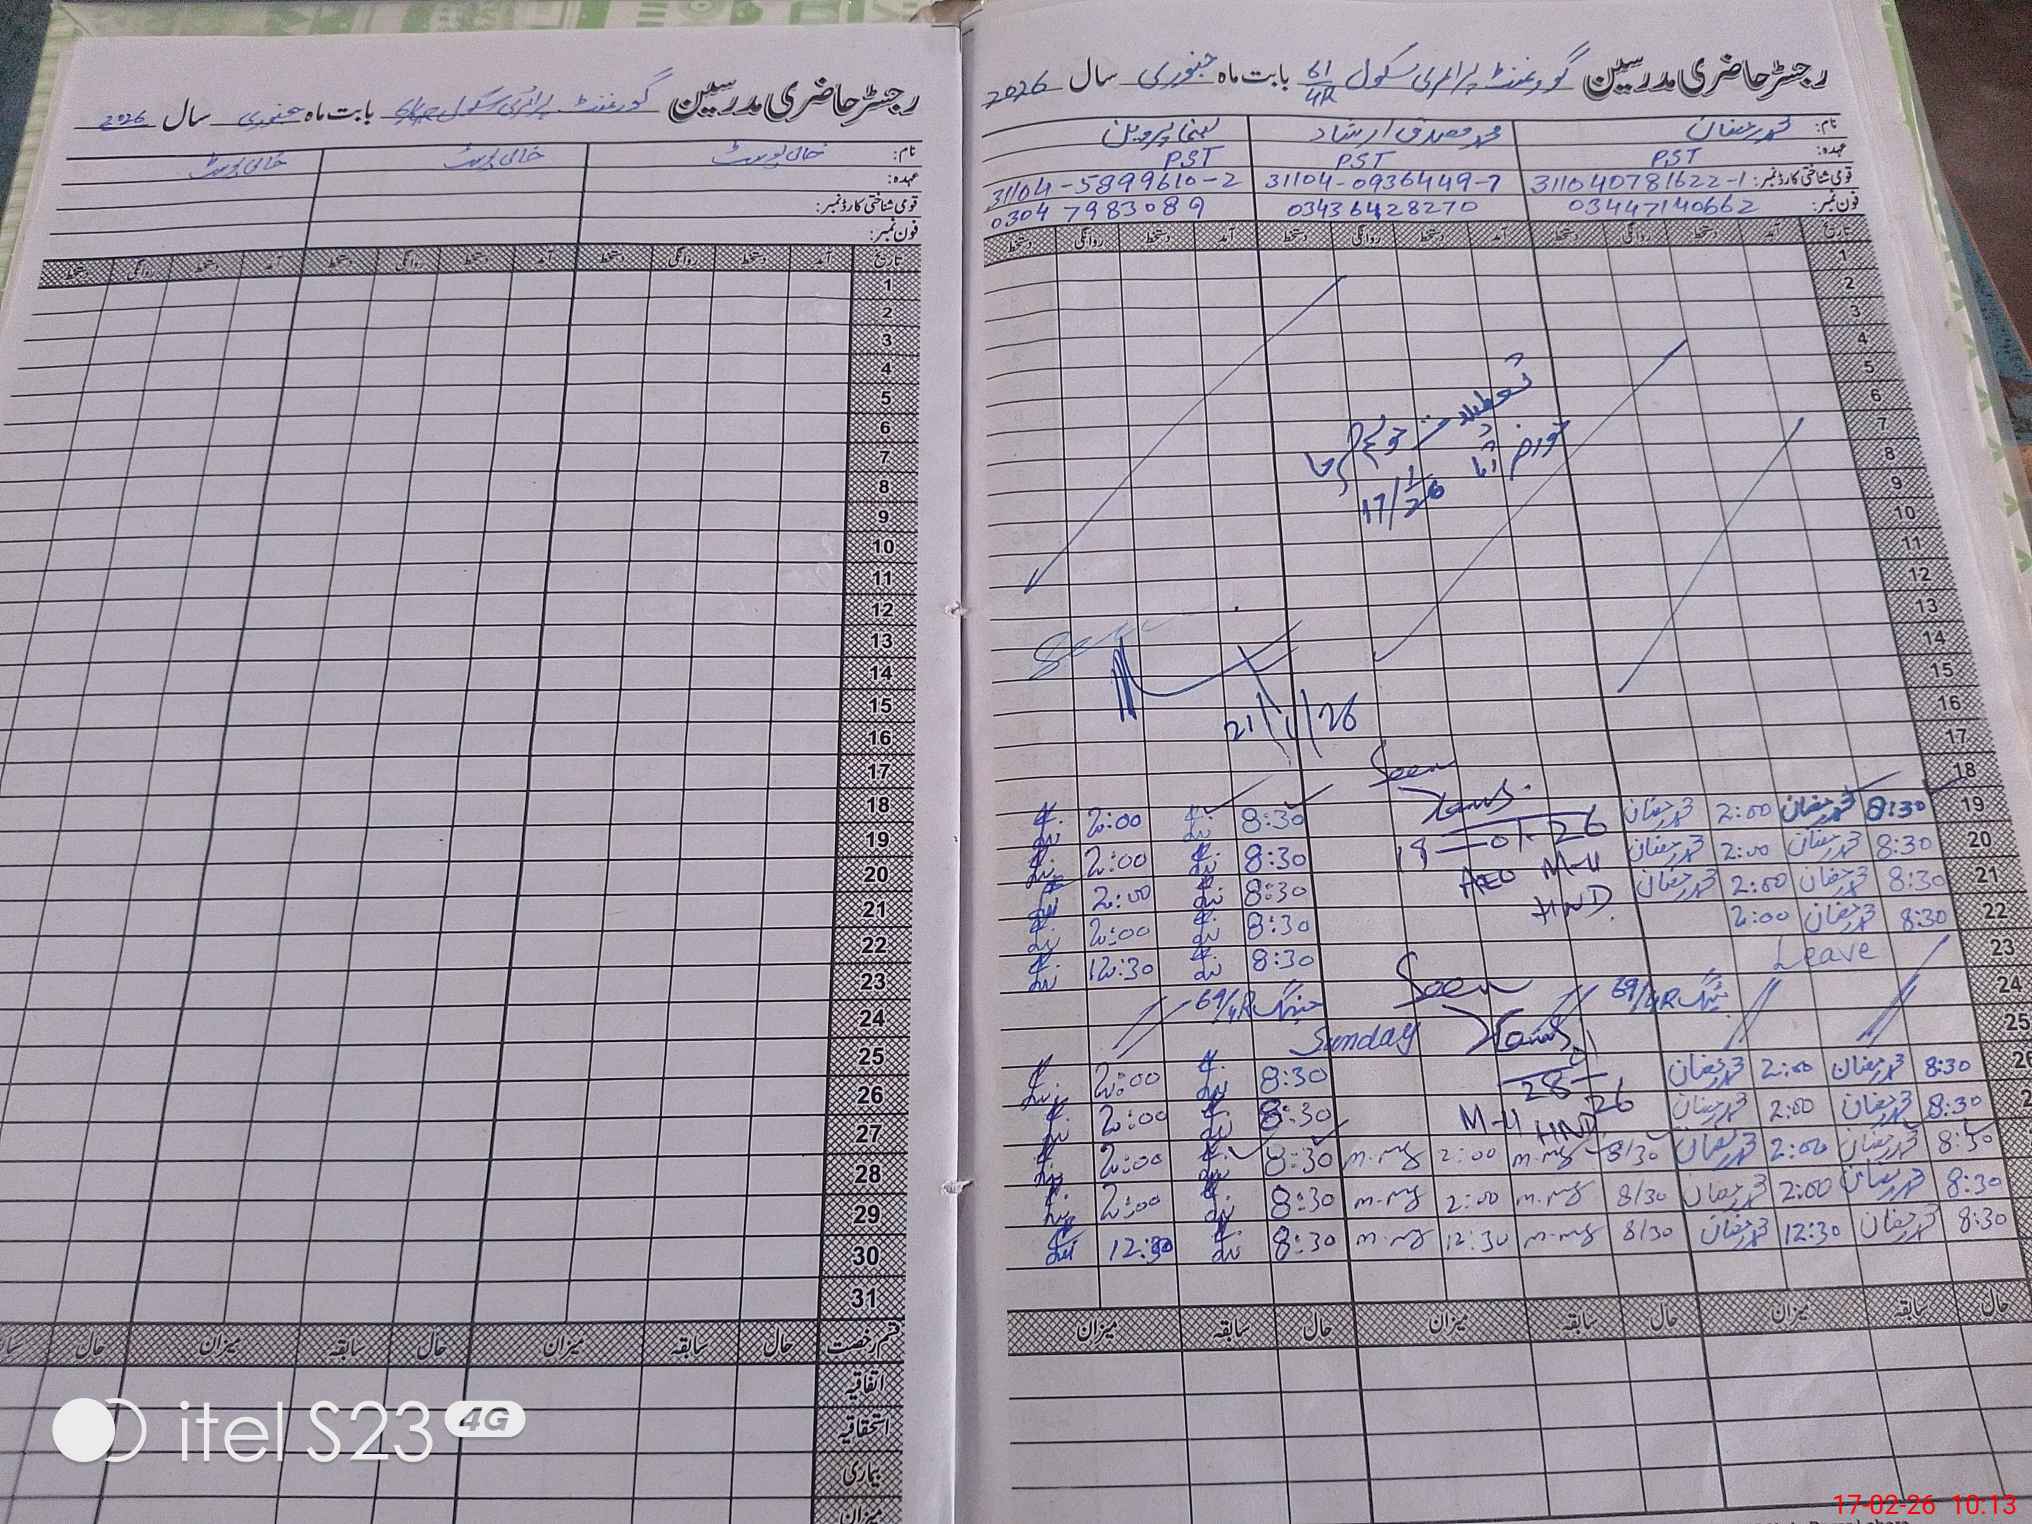 رجسٹر حاضری مدرسین گورنمنٹ پرائمری سکول 61/4R بابت ماہ جنوری سال 2026
نام: محمد رمضان محمد مصدق ارشاد لبنیٰ پروین
عہدہ: PST PST PST
قومی شناختی کارڈ نمبر: 311040781622-1 31104-0936449-7 31104-5899610-2
فون نمبر: 03447140662 03436428270 0304 7983089
تاریخ آمد دستخط روانگی دستخط آمد دستخط روانگی دستخط آمد دستخط روانگی دستخط
1
2
3
4
5
6
7
8
9
10
11
12
13
14
15
16
17
18
تعطیلات
17/1/26
21/1/26
Seen
18-01-26
AEO M-U
HND
19 8:30 محمد رمضان 2:00 محمد رمضان 8:30 2:00
20 8:30 محمد رمضان 2:00 محمد رمضان 8:30 2:00
21 8:30 محمد رمضان 2:00 محمد رمضان 8:30 2:00
22 8:30 محمد رمضان 2:00 8:30 2:00
23 Leave 8:30 12:30
24 69/4R میٹنگ 69/4R میٹنگ
25 Sunday
Seen
28-01-26
M-U HND
26 8:30 محمد رمضان 2:00 محمد رمضان 8:30 2:00
8:30 محمد رمضان 2:00 محمد رمضان 8:30 2:00
8:30 محمد رمضان 2:00 محمد رمضان 8/30 2:00 8:30 2:00
8:30 محمد رمضان 2:00 محمد رمضان 8/30 2:00 8:30 2:00
8:30 محمد رمضان 12:30 محمد رمضان 8/30 12:30 8:30 12:30
حال سابقہ میزان حال سابقہ میزان حال سابقہ میزان
رجسٹر حاضری مدرسین گورنمنٹ پرائمری سکول 61/4R بابت ماہ جنوری سال 2026
نام: خالی پوسٹ خالی پوسٹ خالی پوسٹ
عہدہ:
قومی شناختی کارڈ نمبر:
فون نمبر:
تاریخ آمد دستخط روانگی دستخط آمد دستخط روانگی دستخط آمد دستخط روانگی دستخط
1
2
3
4
5
6
7
8
9
10
11
12
13
14
15
16
17
18
19
20
21
22
23
24
25
26
27
28
29
30
31
قسم رخصت حال سابقہ میزان حال سابقہ میزان حال
اتفاقیہ
استحقاقیہ
بیماری
میزان
itel S23 4G
17-02-26 10:13